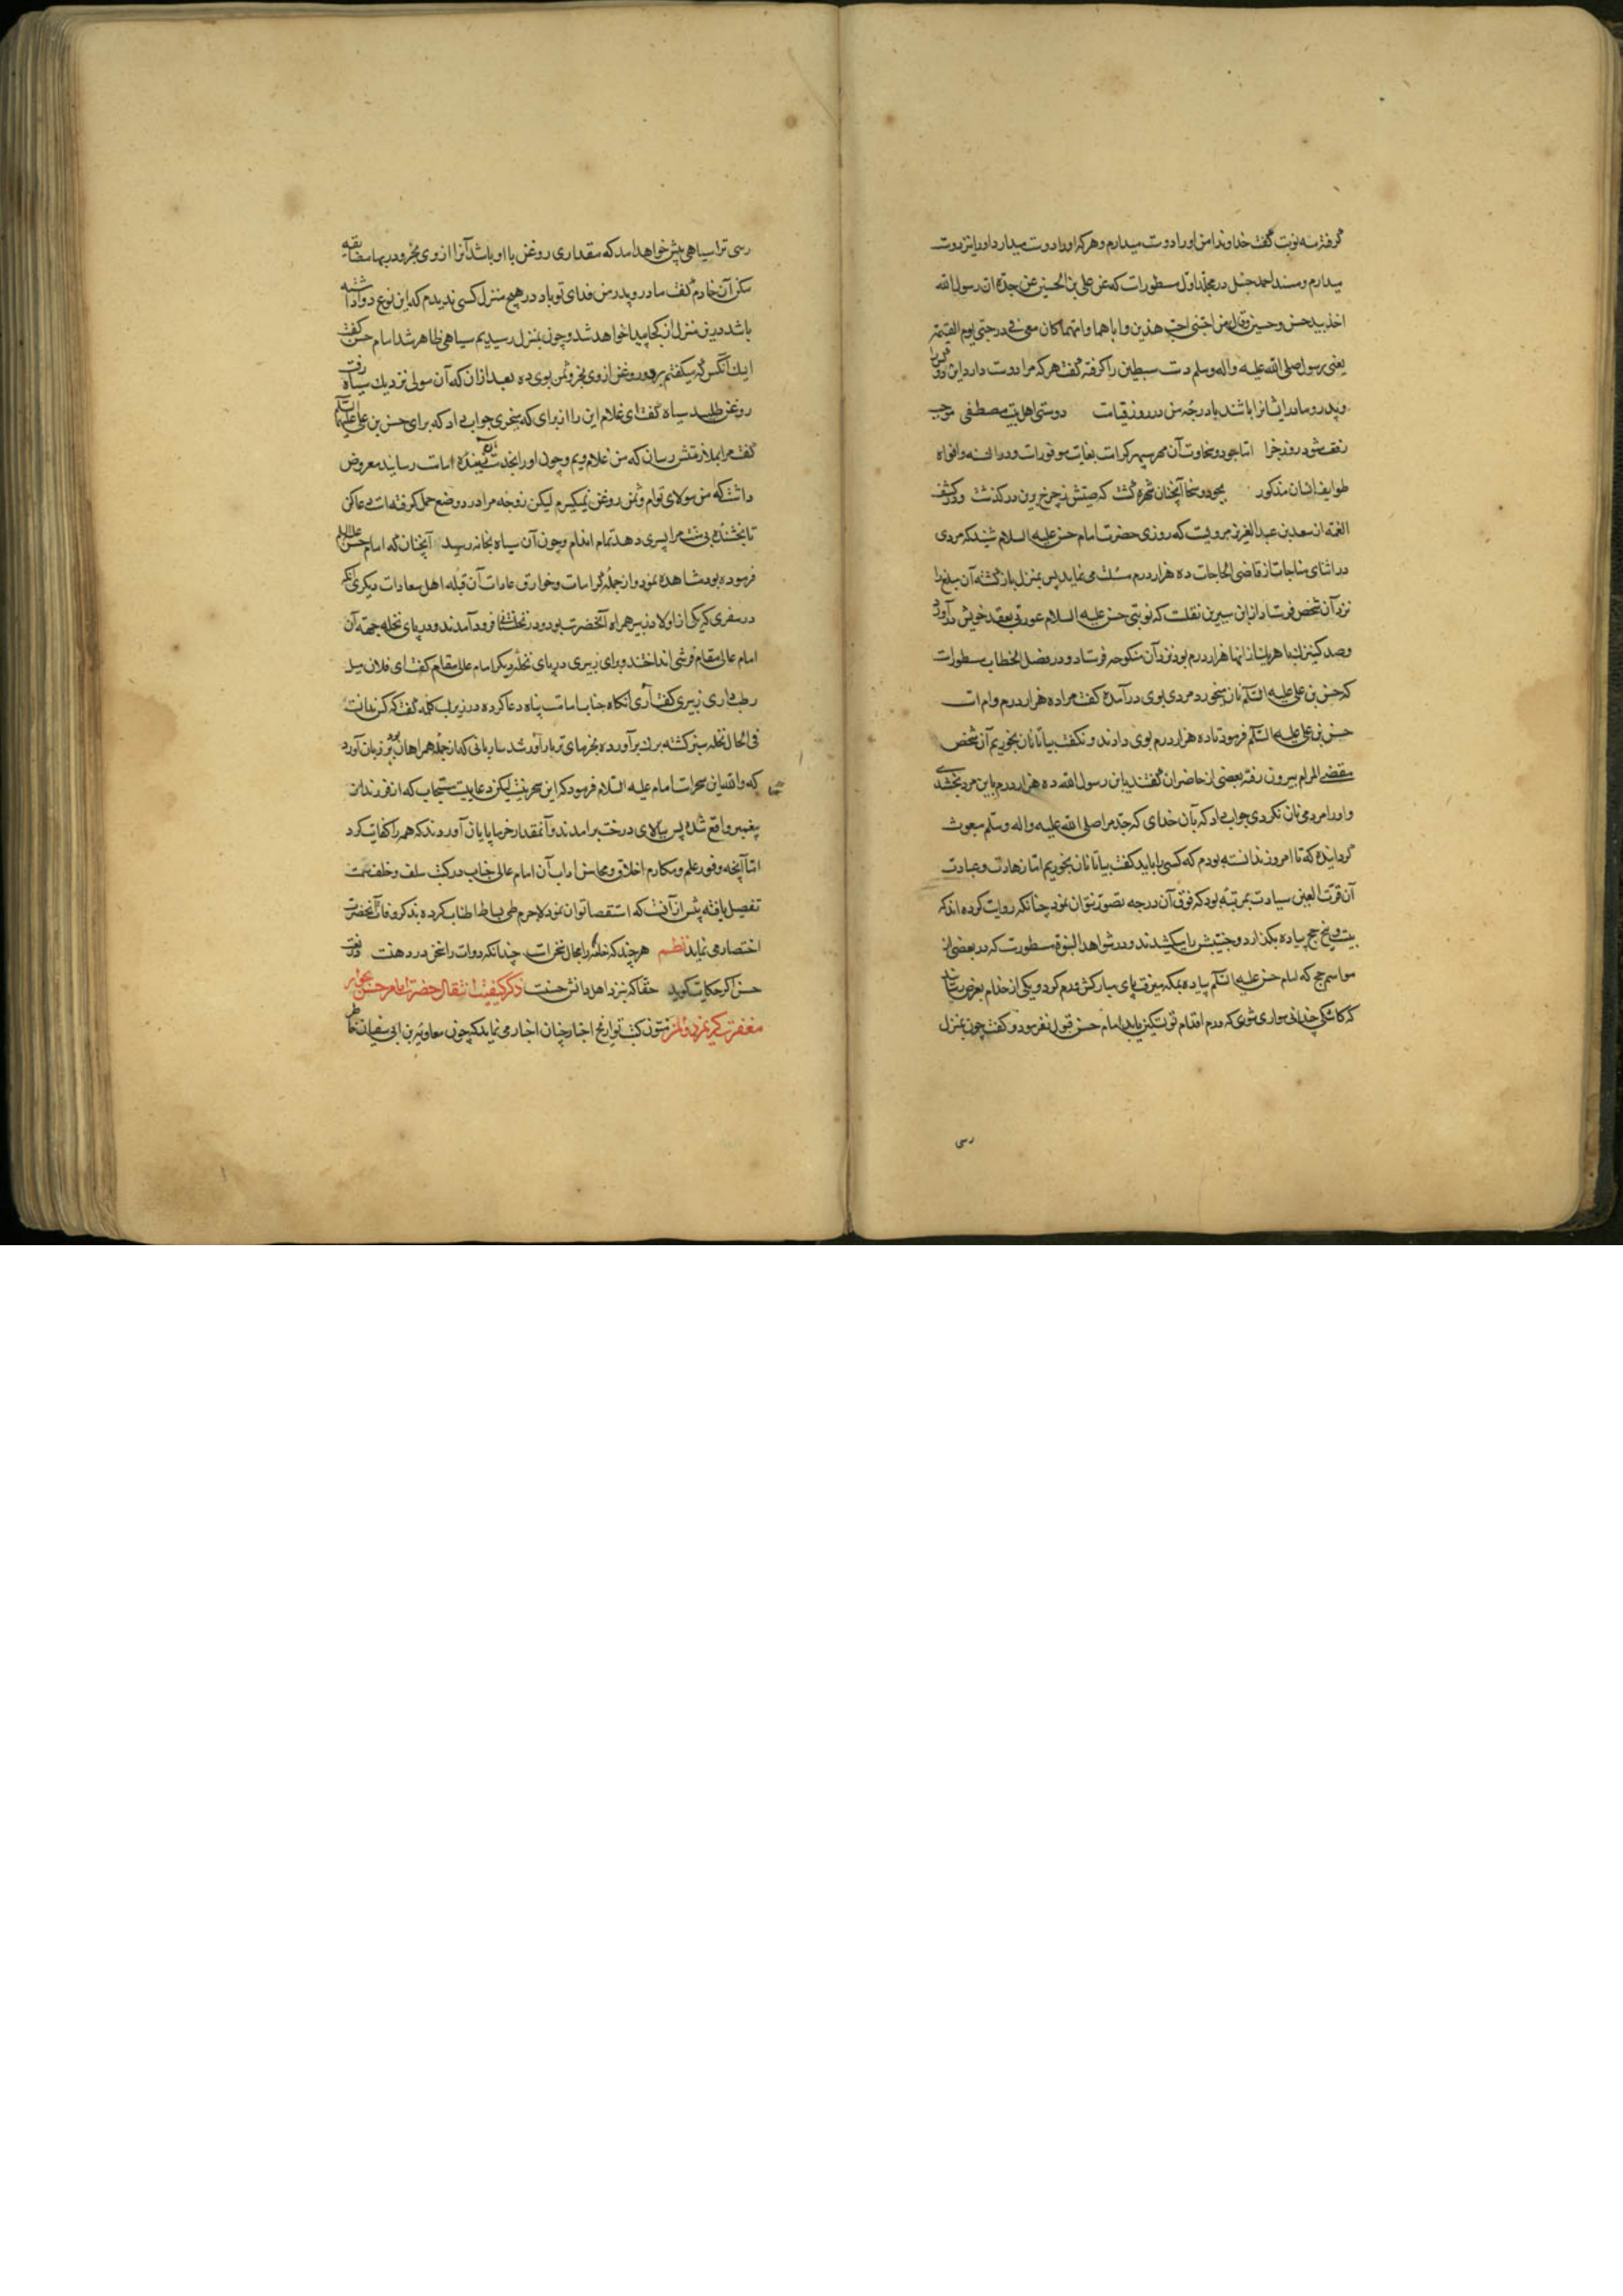 گرفته سه نوبت گفت خداوندا من اورا دوست میدارم و هر که اورا دوست میدارد اورا نیز دوست
میدارم و مسند احمد حنبل در مجلد اول مسطورات که عن علی بن الحسین عن جده ان رسول الله
اخذ بید حسن و حسین و قال من احبنی احب هذین و اباهما و امهما کان معی فی درجتی یوم القیمة
یعنی رسول صلی الله علیه و اله وسلم دست سبطین را گرفته گفت هر که مرا دوست دارد این دو کس را
و پدر و مادر ایشانرا باشد با درجه من در روز قیامت دوستی اهل بیت مصطفی موجب
رفعت شود روز جزا اما جود و سخاوت آن مهر سپهر کرامت بغایت موفورات و در السنه و افواه
طوایف انسان مذکور بجود و سخا آنچنان شهره گشت که صیتش ز چرخ برین در گذشت و در کشف
الغمه از سعد بن عبد العزیز مرویست که روزی حضرت امام حسن علیه السلام شنید که مردی
در اثنای مناجات از قاضی الحاجات ده هزار درم مسئلت می نماید پس بمنزل باز گشته آن مبلغ را
نزد آن شخص فرستاد از ابن سیرین نقلست که نوبتی حسن علیه السلام عورتی بعقد خویش درآورد
و صد کنیزک با هریک از انها هزار درم بود نزد آن منکوحه فرستاد و در فصل الخطاب مسطورات
که حسن بن علی علیه السلام نان میخورد مردی بوی درآمده گفت مرا ده هزار درم وام است
حسن بن علی علیه السلام فرمود تا ده هزار درم بوی دادند و نگفت بیا تا نان بخوریم آن شخص
مقضی المرام بیرون رفته بعضی از حاضران گفتند یا ابن رسول الله ده هزار درم باین مرد بخشیدی
و اورا مردمی نان نکردی جواب داد که بآن خدای که جد مرا صلی الله علیه و اله وسلم مبعوث
گردانیده که تا امروز ندانسته بودم که کسی را باید گفت بیا تا نان بخوریم اما زهادت و عبادت
آن قرت العین سیادت بمرتبهٔ بود که فوق آن درجه تصور نتوان نمود چنانکه روایت کرده اند که
بیست و پنج حج پیاده بگذارد و جنیبتش را میکشیدند و در شواهد النبوة مسطورت که در بعضی از
مواسم حج که امام حسن علیه السلام پیاده بمکه میرفت پای مبارکش ورم کرد و یکی از خدام بعرض رسانید
که کاشکی چندانی سواری شوی که ورم اقدام تو تسکین یابد امام حسن قبول نفرمود و گفت چون بمنزل
رسی
رسی ترا سیاهی پیش خواهد امد که مقداری روغن با او باشد آنرا از وی بخر و در بها مضایقه
مکن آن خادم گفت مادر و پدر من فدای تو باد در هیچ منزل کسی ندیدم که این نوع دوا داشته
باشد درین منزل از کجا پیدا خواهد شد و چون بمنزل رسیدیم سیاهی ظاهر شد امام حسن گفت
اینک آنکس که میگفتم برو و روغن از وی بخر و ثمن بوی ده بعد ازان که آن مولی نزدیک سیاه رفت
روغن طلبید سیاه گفت ای غلام این را از برای که میخری جواب داد که برای حسن بن علی علیهما السلام
گفت مرا بملازمتش رسان که من غلام ویم و چون اورا بخدمت آن امامت رسانید معروض
داشت که من مولای توام و ثمن روغن نمیگیرم لیکن زوجه مرا درد وضع حمل گرفته است دعا کن
تا بخشندهٔ بی منت مرا پسری دهد تمام اندام و چون آن سیاه بخانه رسید آنچنان که امام حسن علیه السلام
فرموده بود مشاهده نمود و از جمله کرامات و خوارق عادات آن قبله اهل سعادات دیگری آنکه
در سفری که یکی از اولاد زبیر همراه آنحضرت بود و در نخلستانی فرود آمدند و در پای نخله جهة آن
امام عالی مقام فرشی انداختند و برای زبیری در پای نخله دیگر امام عالی مقام گفت ای فلان میل
رطب داری زبیری گفت آری آنگاه جناب امامت پناه دعا کرده در زیر لب کلمه گفت که کس ندانست
فی الحال نخله سبز گشته برگ برآورده بخرمای تر بارآور شد ساربانی که از جمله همراهان بود بر زبان آورد
که والله این سحرات امام علیه السلام فرمود که این سحر نیست لیکن دعاییست مستجاب که از فرزندان
پیغمبر واقع شده پس ببالای درخت برامدند و آنمقدار خرما پایان آوردند که همه را کفایت کرد
اما آنچه وفور علم و مکارم اخلاق و محاسن اداب آن امام عالی جناب در کتب سلف و خلف سمت
تفصیل یافته بیش از آنست که استقصا توان نمود لاجرم طی بساط اطناب کرده بذکر وفات آنحضرت
اختصار می نماید نظم هر چند که خامه را مجال سخن است چندانکه دوات را سخن در دهنست
حسن اگر حکایت گوید حقا که بنزد اهل دانش حسنست ذکر کیفیت انتقال حضرت امام حسن بجوار
مغفرت کریم ذو المنن متون کتب تواریخ اخبار چنان اخبار می نماید که چون معاویه بن ابی سفیان خاطر